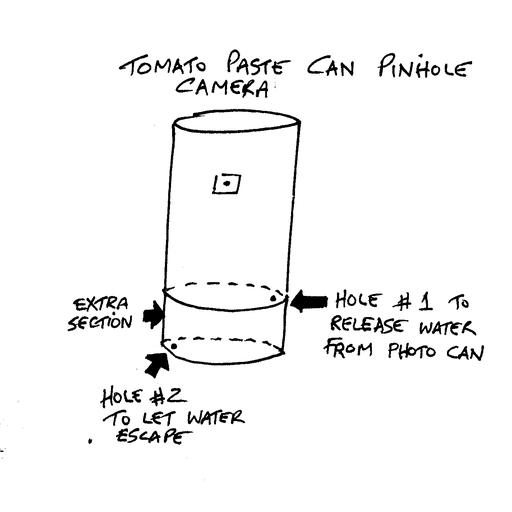 TOMATO PASTE CAN PINHOLE
CAMERA
EXTRA
SECTION
HOLE #1 TO
RELEASE WATER
FROM PHOTO CAN
HOLE #2
TO LET WATER
ESCAPE